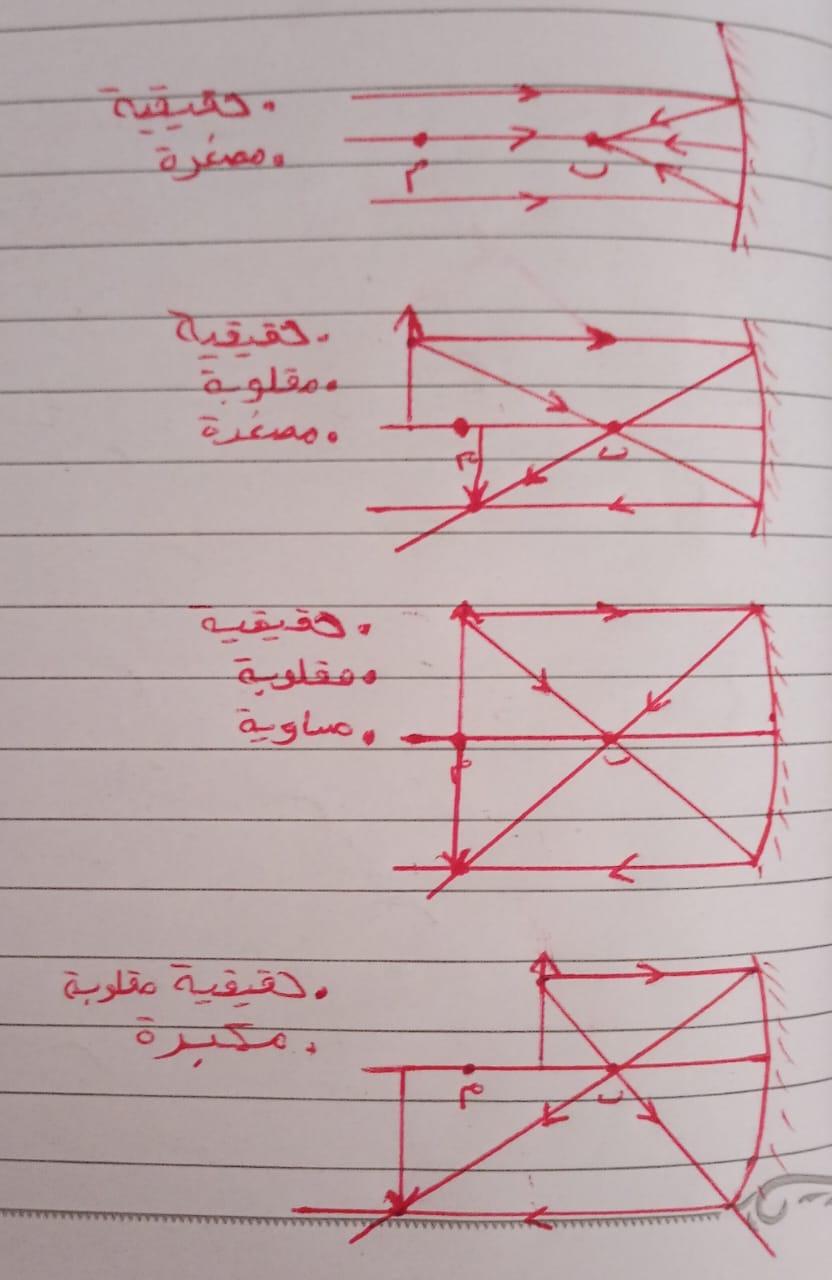 . حقيقية
. مصغرة
م
ب
. حقيقية
. مقلوبة
. مصغرة
م
ب
. حقيقية
. مقلوبة
. مساوية
م
ب
. حقيقية مقلوبة
. مكبرة
م
ب